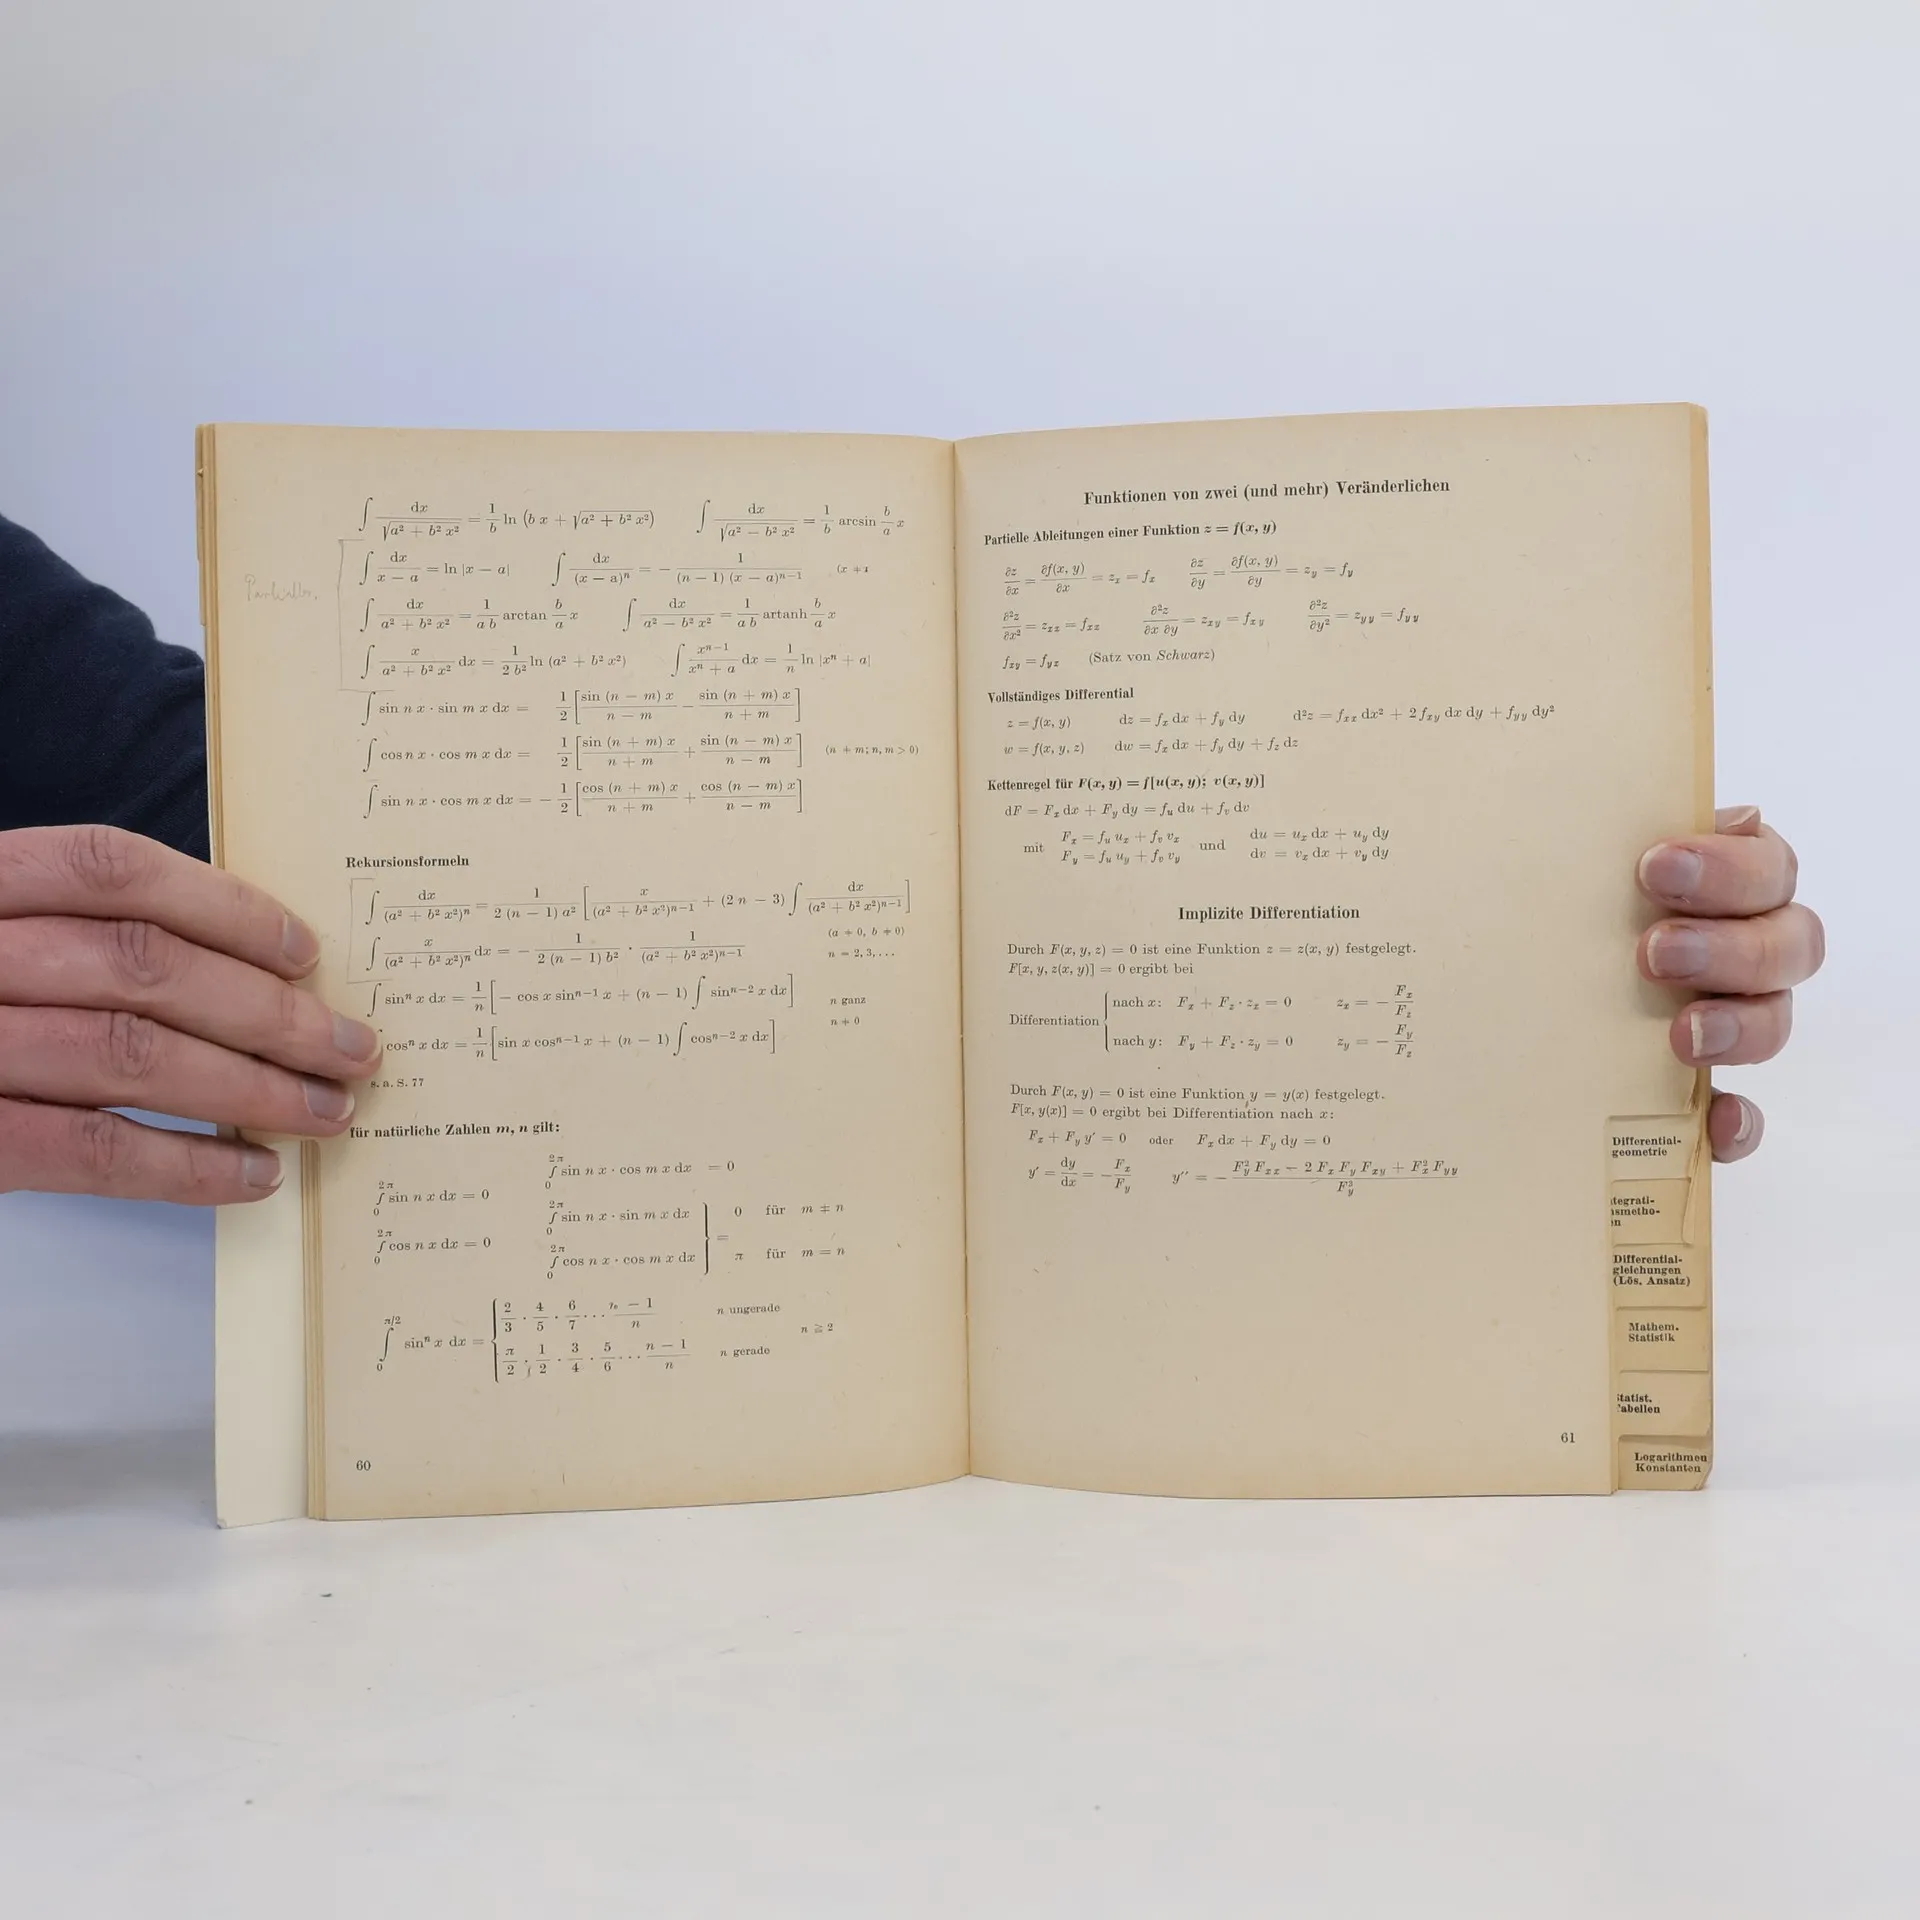 ∫ dx/√(a² + b² x²) = 1/b ln (b x + √(a² + b² x²))   ∫ dx/√(a² − b² x²) = 1/b arcsin b/a x
∫ dx/(x − a) = ln |x − a|   ∫ dx/(x − a)ⁿ = − 1/((n − 1) (x − a)ⁿ⁻¹)   (x ≠
∫ dx/(a² + b² x²) = 1/(a b) arctan b/a x   ∫ dx/(a² − b² x²) = 1/(a b) artanh b/a x
∫ x/(a² + b² x²) dx = 1/(2 b²) ln (a² + b² x²)   ∫ xⁿ⁻¹/(xⁿ + a) dx = 1/n ln |xⁿ + a|
∫ sin n x · sin m x dx = 1/2 [sin (n − m) x/(n − m) − sin (n + m) x/(n + m)]
∫ cos n x · cos m x dx = 1/2 [sin (n + m) x/(n + m) + sin (n − m) x/(n − m)]   (n ≠ m; n, m > 0)
∫ sin n x · cos m x dx = − 1/2 [cos (n + m) x/(n + m) + cos (n − m) x/(n − m)]
Rekursionsformeln
∫ dx/(a² + b² x²)ⁿ = 1/(2 (n − 1) a²) [x/(a² + b² x²)ⁿ⁻¹ + (2 n − 3) ∫ dx/(a² + b² x²)ⁿ⁻¹]
(a ≠ 0, b ≠ 0)
∫ x/(a² + b² x²)ⁿ dx = − 1/(2 (n − 1) b²) · 1/(a² + b² x²)ⁿ⁻¹   n = 2, 3, . . .
∫ sinⁿ x dx = 1/n [− cos x sinⁿ⁻¹ x + (n − 1) ∫ sinⁿ⁻² x dx]   n ganz
n ≠ 0
cosⁿ x dx = 1/n [sin x cosⁿ⁻¹ x + (n − 1) ∫ cosⁿ⁻² x dx]
s. a. S. 77
für natürliche Zahlen m, n gilt:
2π∫0 sin n x · cos m x dx = 0
2π∫0 sin n x dx = 0
2π∫0 sin n x · sin m x dx } = 0 für m ≠ n
2π∫0 cos n x dx = 0
2π∫0 cos n x · cos m x dx } π für m = n
π/2∫0 sinⁿ x dx = { 2/3 · 4/5 · 6/7 · · · (n − 1)/n   n ungerade
n ≧ 2
π/2 · 1/2 · 3/4 · 5/6 · · · (n − 1)/n   n gerade
60
Funktionen von zwei (und mehr) Veränderlichen
Partielle Ableitungen einer Funktion z = f(x, y)
∂z/∂x = ∂f(x, y)/∂x = zₓ = fₓ   ∂z/∂y = ∂f(x, y)/∂y = z_y = f_y
∂²z/∂x² = z_xx = f_xx   ∂²z/∂x ∂y = z_xy = f_xy   ∂²z/∂y² = z_yy = f_yy
f_xy = f_yx   (Satz von Schwarz)
Vollständiges Differential
z = f(x, y)   dz = f_x dx + f_y dy   d²z = f_xx dx² + 2 f_xy dx dy + f_yy dy²
w = f(x, y, z)   dw = f_x dx + f_y dy + f_z dz
Kettenregel für F(x, y) = f[u(x, y); v(x, y)]
dF = F_x dx + F_y dy = f_u du + f_v dv
mit F_x = f_u u_x + f_v v_x und du = u_x dx + u_y dy
F_y = f_u u_y + f_v v_y   dv = v_x dx + v_y dy
Implizite Differentiation
Durch F(x, y, z) = 0 ist eine Funktion z = z(x, y) festgelegt.
F[x, y, z(x, y)] = 0 ergibt bei
Differentiation { nach x: F_x + F_z · z_x = 0   z_x = − F_x/F_z
nach y: F_y + F_z · z_y = 0   z_y = − F_y/F_z
Durch F(x, y) = 0 ist eine Funktion y = y(x) festgelegt.
F[x, y(x)] = 0 ergibt bei Differentiation nach x:
F_x + F_y y′ = 0 oder F_x dx + F_y dy = 0
y′ = dy/dx = − F_x/F_y   y″ = − (F_y² F_xx − 2 F_x F_y F_xy + F_x² F_yy)/F_y³
61
Differential-
geometrie
tegrati-
smetho-
en
Differential-
gleichungen
(Lös. Ansatz)
Mathem.
Statistik
tatist.
abellen
Logarithmen
Konstanten